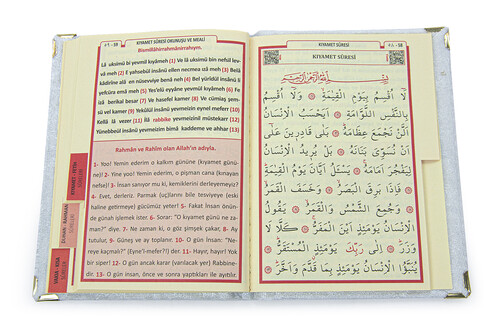 KIYAMET SÛRESİ OKUNUŞU VE MEALİ
Bismillâhirrahmânirrahıym.
Lâ uksimü bi yevmil kıyâmeh (1) Ve lâ uksimü bin nefsil lev-
vâmeh (2) E yahsebül insânü ellen necmea ızâmeh (3) Belâ
kâdiriyne alâ en nüsevviye benâneh (4) Bel yüriydül insânü li
yefcüra emâmeh (5) Yes'elü eyyâne yevmül kıyâmeh (6) Fe
izâ berikal besar (7) Ve hasefel kamer (8) Ve cümiaş şem-
sü vel kamer (9) Yekûlül insânü yevmeizin eynel mefer (10)
Kellâ lâ vezer (11) İlâ rabbike yevmeizinil müstekarr (12)
Yünebbeül insânü yevmeizim bimâ kaddeme ve ahhar (13)
Rahmân ve Rahîm olan Allah'ın adıyla.
1- Yoo! Yemin ederim o kalkım gününe (kıyamet günü-
ne)! 2- yine yoo! Yemin ederim, o pişman cana (kınayan
nefse)! 3- İnsan sanıyor mu ki, kemiklerini derleyemeyiz?
4- Evet, derleriz. Parmak (uç)larını bile tesviyeye (eski
haline getirmeye) gücümüz yeter! 5- Fakat İnsan önün-
de günah işlemek ister. 6- Sorar: "O kıyamet günü ne za-
man?" diye. 7- Ne zaman ki, o göz şimşek çakar, 8- Ay
tutulur, 9- Güneş ve Ay toplanır. 10- O gün İnsan: "Ne-
reye kaçmalı?" (Eyne'l-mefer?!) der. 11- Hayır, hayır! Yok
bir siper! 12- O gün ancak karar (varılacak yer) Rabbine-
dir. 13- O gün insan, önce ve sonra yaptıkları ile ayıltılır.
KIYAMET SÛRESİ
KIYAMET SÛRESİ
بِسْمِ اللهِ الرَّحْمٰنِ الرَّحِيمِ
لَٓا اُقْسِمُ بِيَوْمِ الْقِيٰمَةِ ۝ وَلَٓا اُقْسِمُ
بِالنَّفْسِ اللَّوَّامَةِ ۝ اَيَحْسَبُ الْاِنْسَانُ
اَلَّنْ نَجْمَعَ عِظَامَهُ ۝ بَلٰى قَادِرِينَ عَلٰٓى
اَنْ نُسَوِّيَ بَنَانَهُ ۝ بَلْ يُرِيدُ الْاِنْسَانُ
لِيَفْجُرَ اَمَامَهُ ۝ يَسْـَٔلُ اَيَّانَ يَوْمُ الْقِيٰمَةِ
۝ فَاِذَا بَرِقَ الْبَصَرُ ۝ وَخَسَفَ الْقَمَرُ
۝ وَجُمِعَ الشَّمْسُ وَالْقَمَرُ ۝ يَقُولُ
الْاِنْسَانُ يَوْمَئِذٍ اَيْنَ الْمَفَرُّ ۝ كَلَّا لَا
وَزَرَ ۝ اِلٰى رَبِّكَ يَوْمَئِذٍ الْمُسْتَقَرُّ ۝
يُنَبَّؤُا الْاِنْسَانُ يَوْمَئِذٍ بِمَا قَدَّمَ وَاَخَّرَ ۝